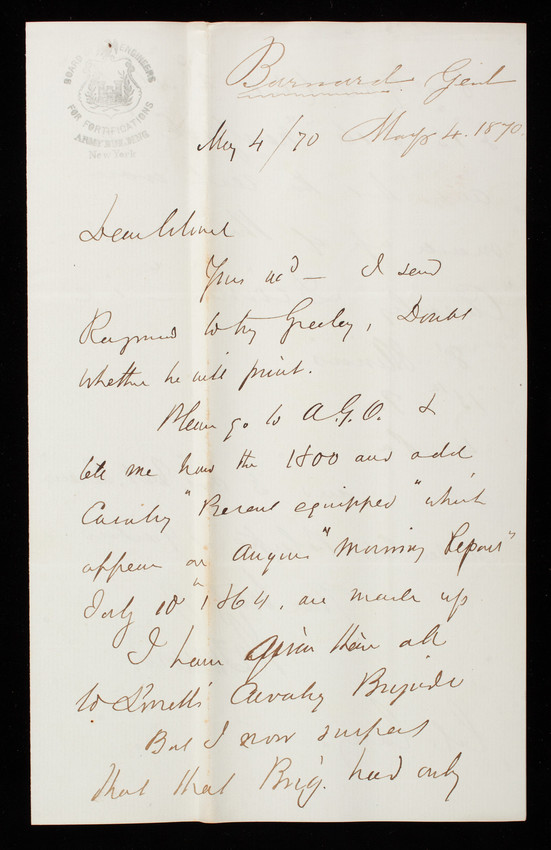 BOARD OF ENGINEERS
FOR FORTIFICATIONS
ARMY BUILDING
New York
Barnard. Genl
May 4. 1870.
May 4/70
Dear Colonel
Yours recd — I send
Raymond to try Greeley, Doubt
whether he will print.
Please go to A.G.O. &
let me how the 1800 and odd
Cavalry "Recent equipped" which
appear on Augurs "Morning Report"
July 10th 1864, are made up
I have given them all
to Lowell's Cavalry Brigade
But I now suspect
that that Brig. had only